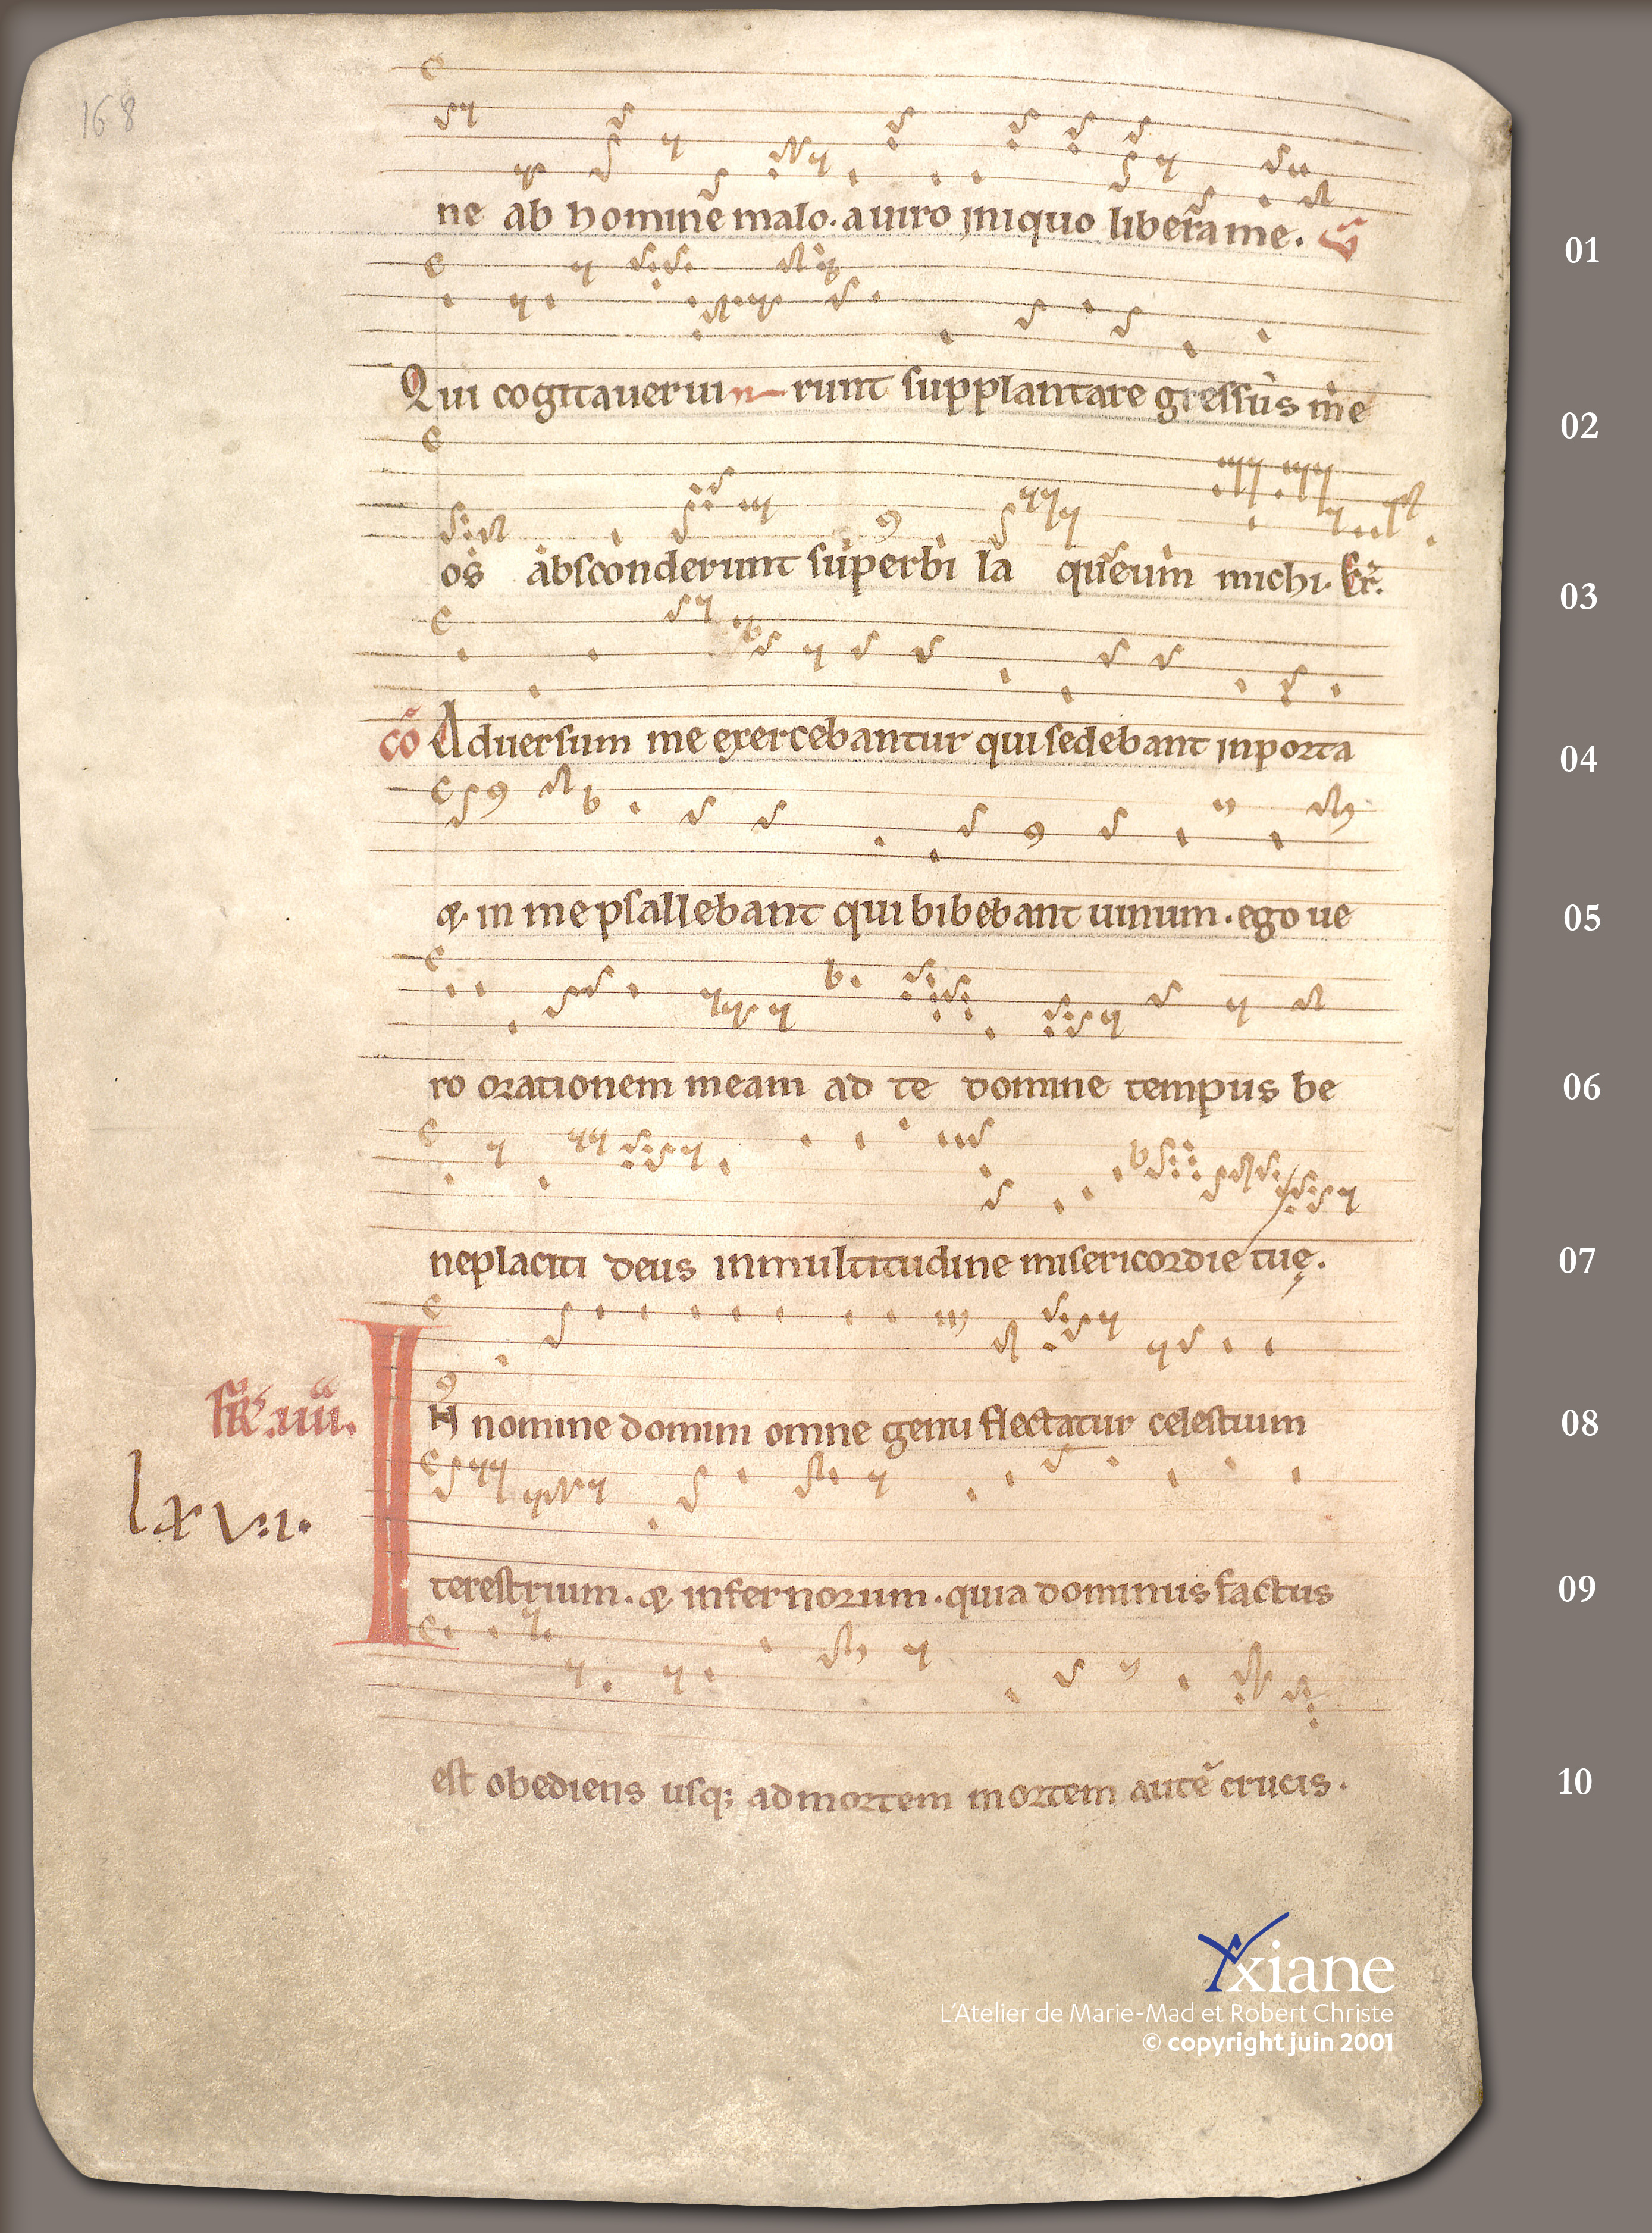 168
ne ab homine malo. a uiro iniquo libera me. V
01
Qui cogitauerun runt supplantare gressus me
02
os absconderunt superbi la queum michi. Et.
03
cō Aduersum me exercebantur qui sedebant in porta
04
& in me psallebant qui bibebant uinum. ego ue
05
ro orationem meam ad te domine tempus be
06
neplaciti deus in multitudine misericordie tuę.
07
fR̃ .iiii. IN nomine domini omne genu flectatur celestium
08
lxv.i.
terestrium. & infernorum. quia dominus factus
09
est obediens usq; ad mortem mortem autē crucis.
10
Axiane
L'Atelier de Marie-Mad et Robert Christe
© copyright juin 2001